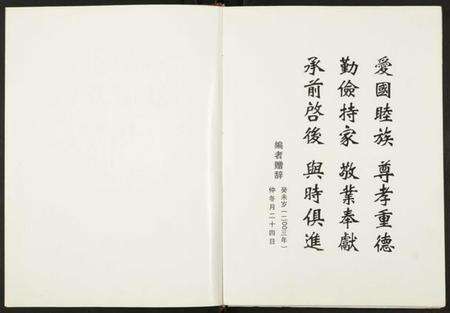 愛國睦族 尊孝重德
勤儉持家 敬業奉獻
承前啓後 與時俱進
編者贈辞
癸未岁(二〇〇三年)
仲冬月二十四日